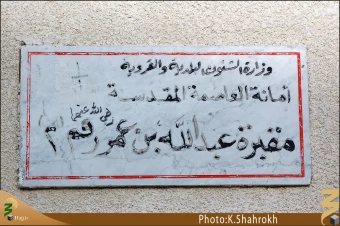 وزارة الشئون البلدية والقروية
أمانة العاصمة المقدسة
رضي الله عنهما
مقبرة عبدالله بن عمر رقم
Photo:K.Shahrokh
Hajj.ir